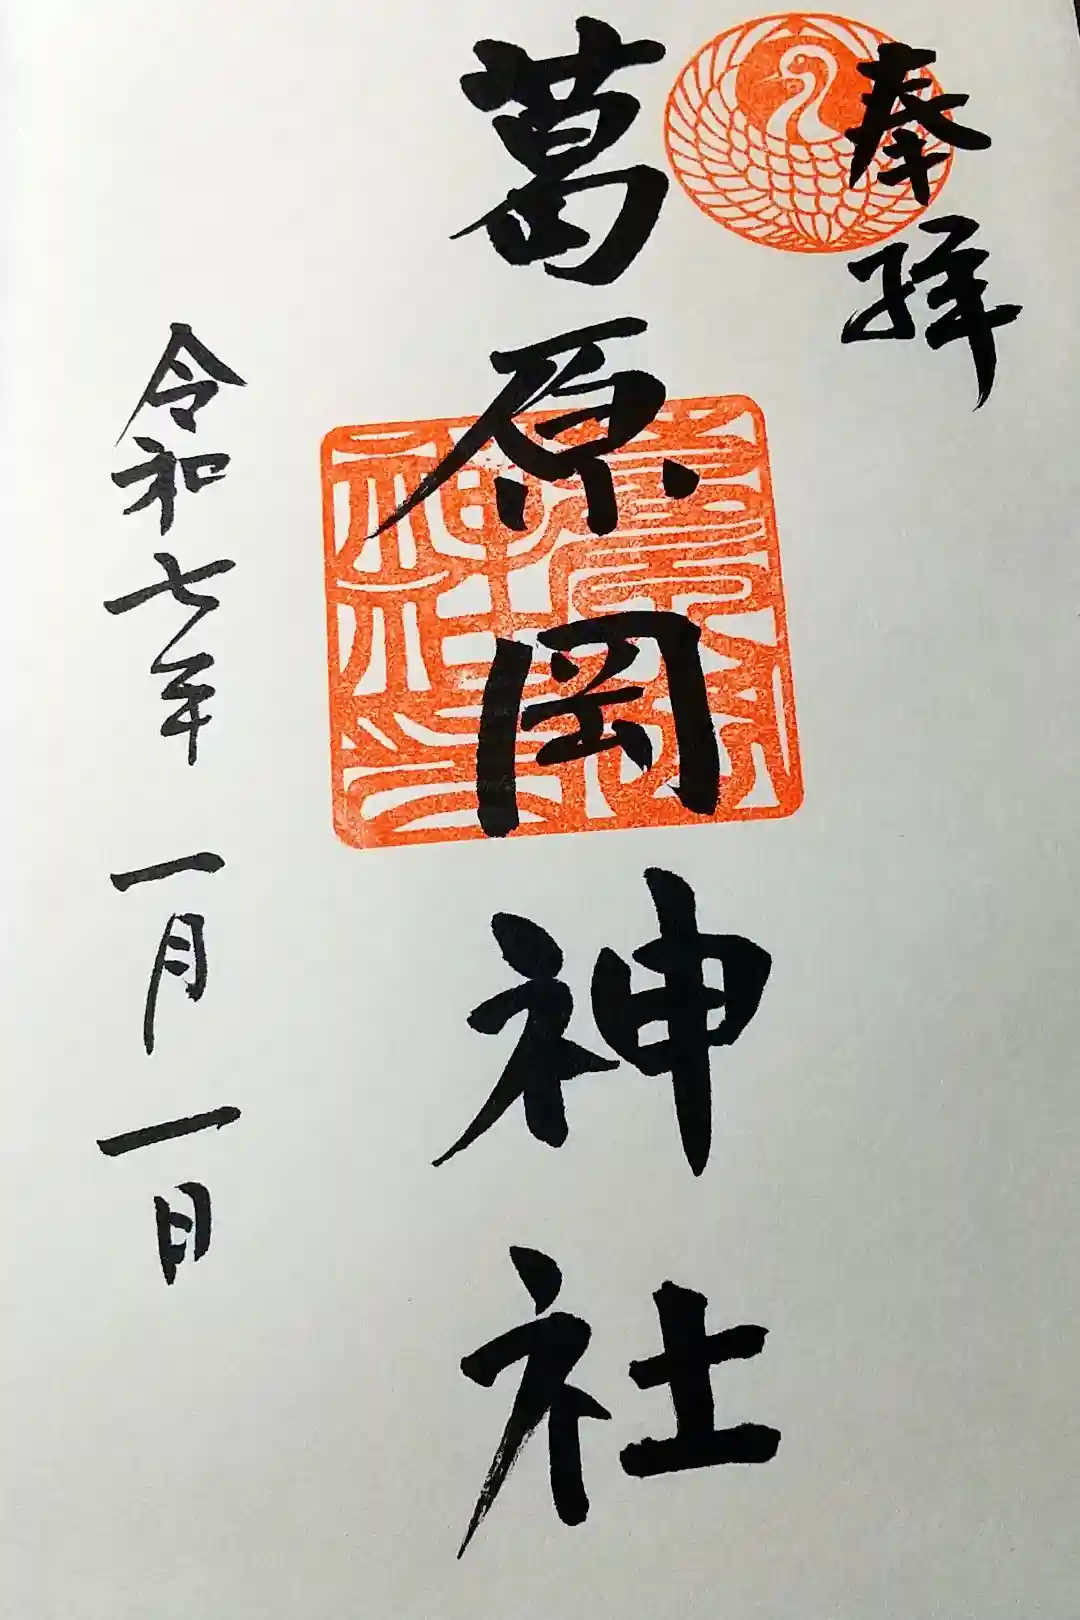 奉拝
葛原岡神社
令和七年 一月 一日